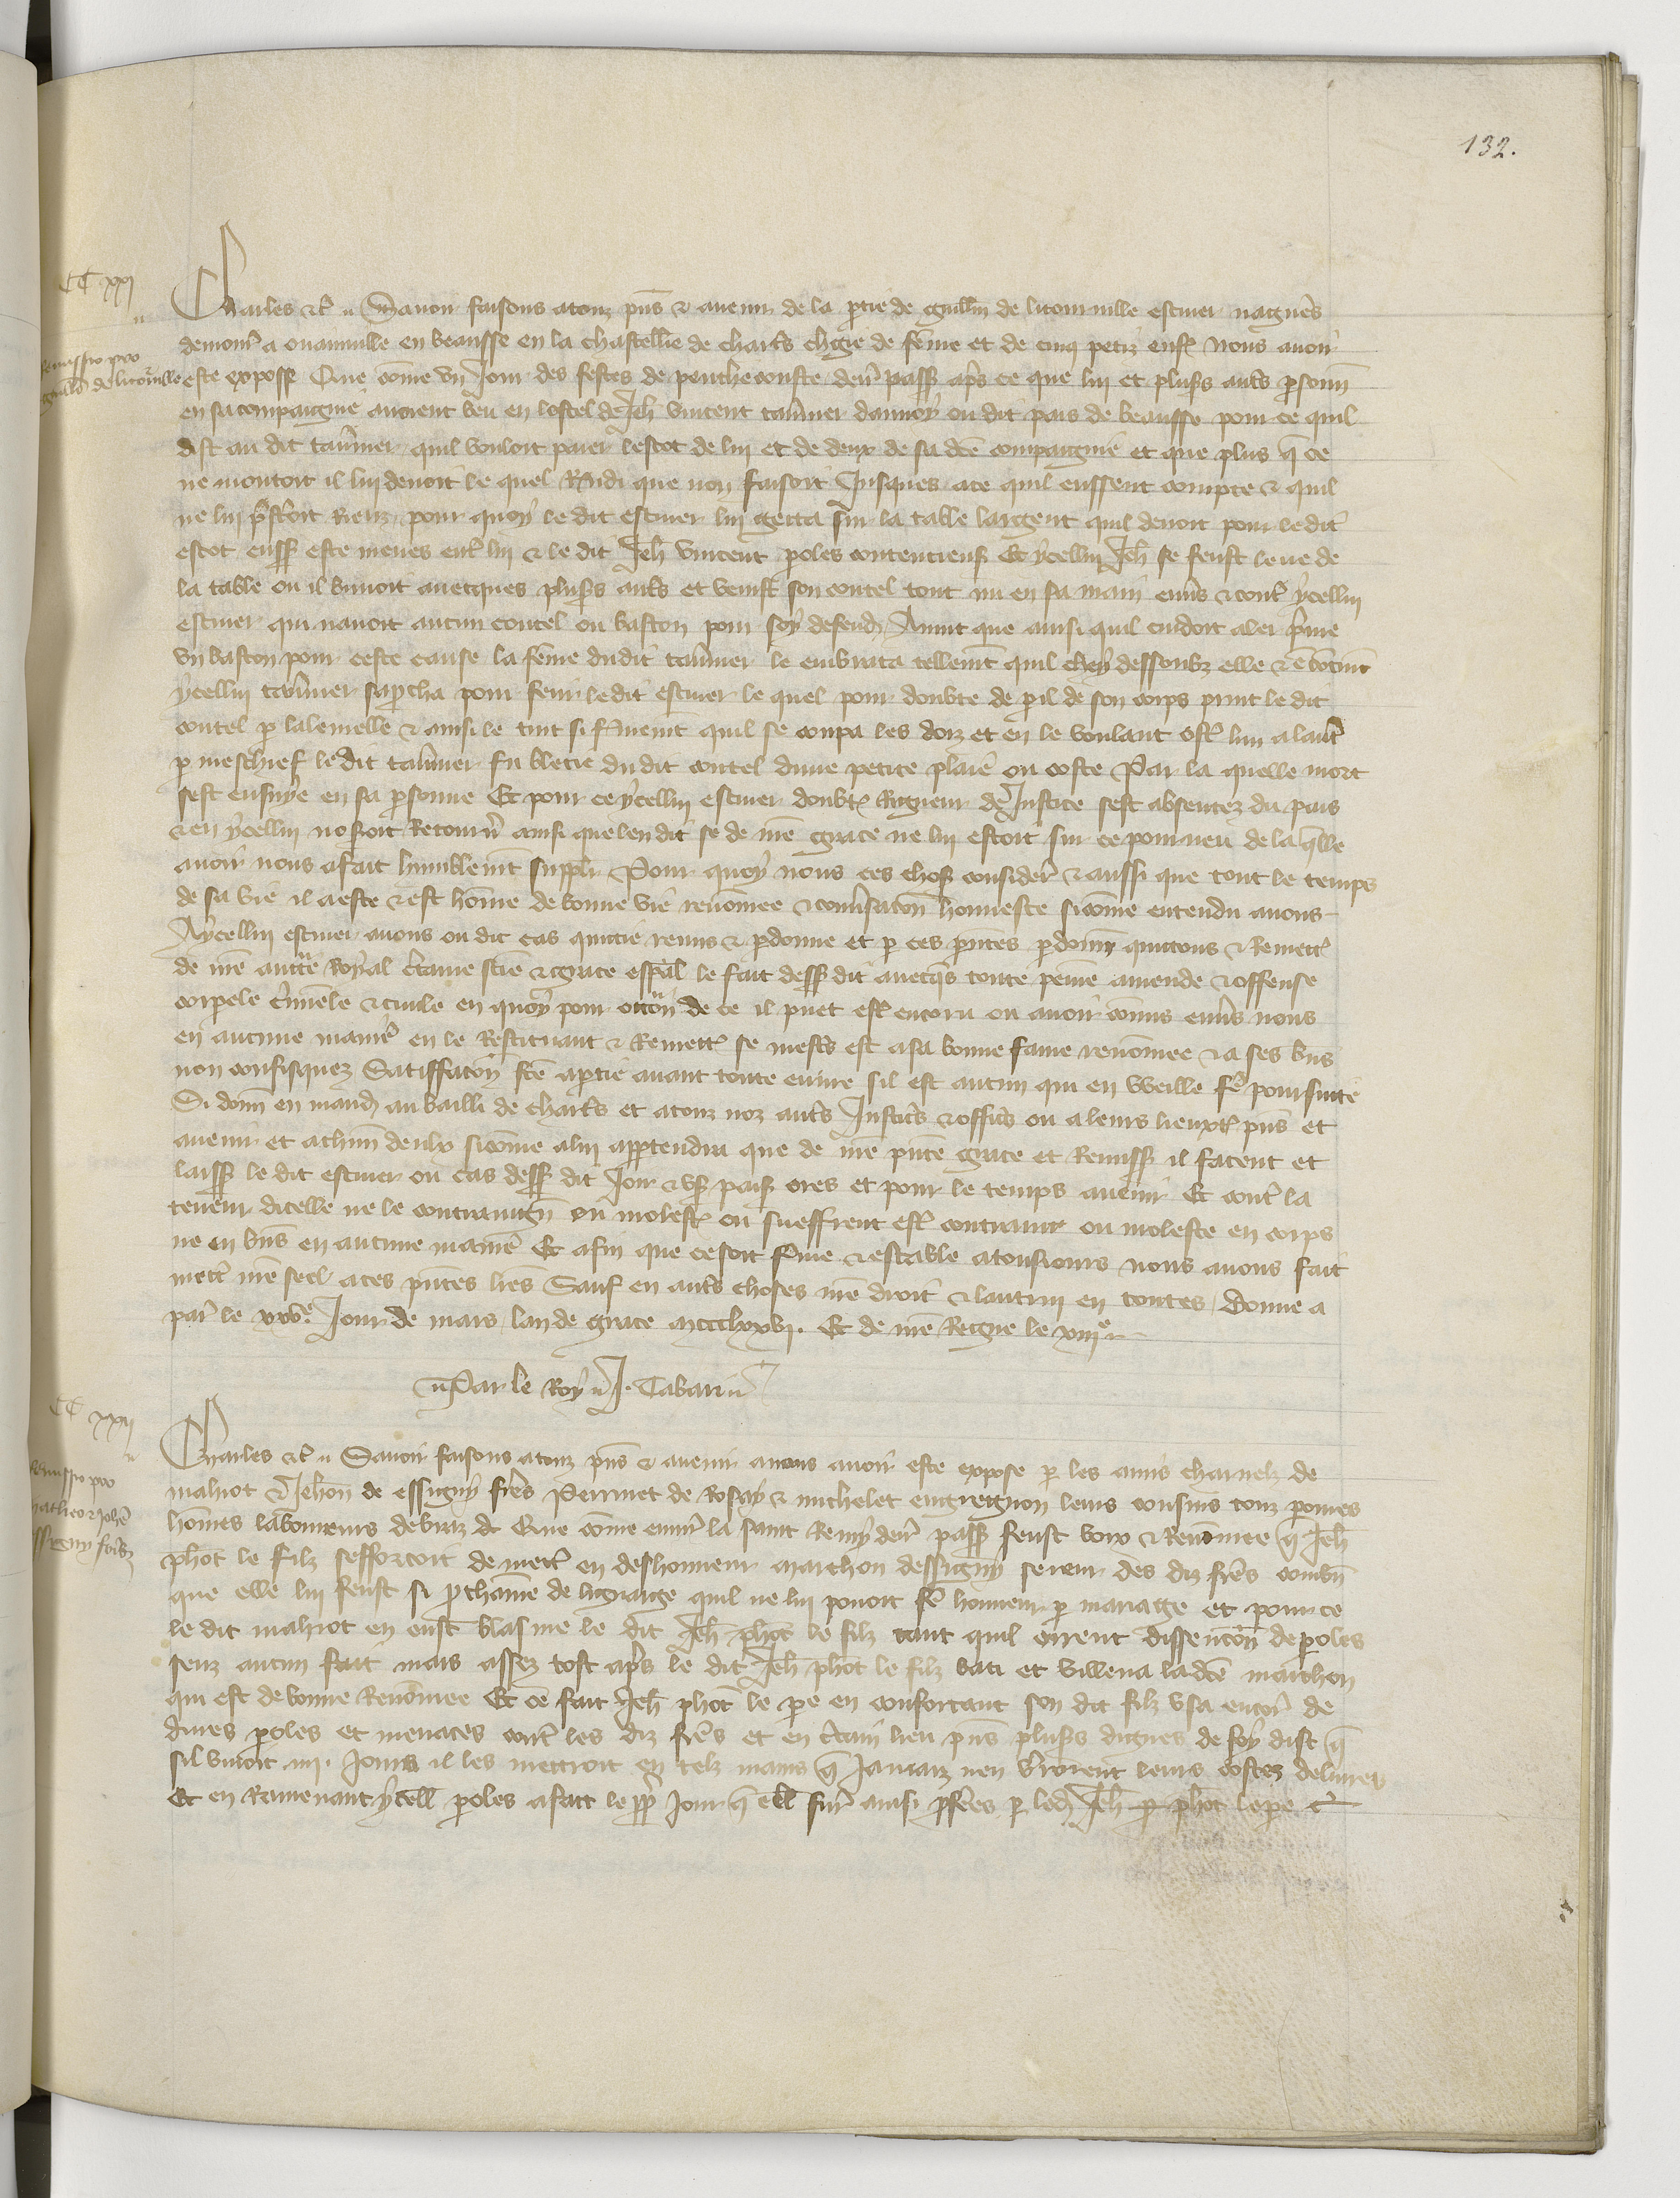 132.
CC xxj
Charles etc. Savoir faisons a touz pns et avenir de la ptie de guillm de litournille escuier nagueres
demour a ouainville en beausse en la chastellie de chartrs chgie de feme et de cinq petiz enfs nous avoir
Remissio pro
guillo de litornille
este exposse Que come un Jour des festes de penthecouste derr passe apres ce que lui et plusrs autrs psonn
en sa compaignie avoient beu en lostel de Jeh vincent tavrnier daunoy ou dit pais de beausse pour ce quil
dist au dit tavrnier quil vouloit paier lescot de lui et de deux de sa dce compaignie et que plus q ce
ne montoit il lui devoit le quel Rndi que non faisoit Jusques a ce quil eussent compte et quil
ne lui prstoit Rienz pour quoy le dit escuier lui getta sur la table largent quil devoit pour le dit
escot eusss este meues entr lui et le dit Jeh vincent poles contencieuss Et ycellui Jeh se feust leve de
la table ou il buvoit avecques plusrs autrs et venist son coutel tout nu en sa main envrs et contr ycellui
escuier qui navoit aucun coutel ou baston pour soy defendr Avint que ainsi quil cuidoit aler prnre
un baston pour ceste cause la feme dudit tavrnier le embraca tellemt quil chey dessoubz elle et
ycellui tavrnier sapcha pour ferir le dit escuier le quel pour doubte de pil de son corps print le dit
coutel p lalemelle et ainsi le tint si q se coupa les doiz et en le voulant ostr lun a lautr
p meschief le dit tavrnier fu blecie dudit coutel dune petite plaie ou coste Par la quelle mort
sest ensuye en sa psonne Et pour ce ycellui escuier doubtr Rigueur de Justice sest absentez du pais
et en ycellui noseroit Retournr ainsi que len dit se de nre grace ne lui estoit sur ce pourveu de la qlle
avoir nous a fait humblemt supplir Pour quoy nous ces choss considere et aussi que tout le temps
de sa vie il a este et est home de bonne vie renomee et convrsacon honneste sicome entendu avons
A ycellui escuier avons ou dit cas quictie remis et pdonne et p ces prntes pdonn quictons et Remettr
de nre auctte Royal crtaine scie et grace espal le fait desss dit avecqs toute peine amende et offense
corpele crimele et civile en quoy pour occon de ce il puet estr encoru ou avoir comis envrs nous
en aucune manire en le Restituant et Remettr se mestrs est a sa bonne fame renomee et a ses bns
non confisquez Satisffacon fce a ptie avant toute euvre sil est aucun qui en vueille fe poursuite
Si donn en mandr au bailli de chartrs et a touz noz autrs Justicrs et officrs ou a leurs lieuxtr pns et
avenir et a chun deulx sicome a lui apptendra que de nre pnte grace et Remiss il facent et
laisss le dit escuier ou cas desss dit Joir et uss paiss ores et pour le temps avenir Et contr la
teneur dicelle ne le contraingn ou molestr ou sueffrent estr contraint ou moleste en corps
ne en bns en aucune manire Et afin que ce soit frme et estable a tousiours nous avons fait
mettr nre seel a ces pntes lres Sauf en autrs choses nre droit et lautrui en toutes Donne a
par le xxve Jour de mars lan de grace mccclxxvj. Et de nre Regne le xiije
Par le Roy J. Tabari
CC xxij
Charles etc. Savoir faisons a touz pns et avenir a nous avoir este expose p les amis charnelz de
mahiot et Jehan de essigny frres Perrinet de Rosay et michelet engreignon leurs cousins touz povres
Remissio pro
matheo et Johe
essigny frbz
homes laboureurs de braz etc Que come environ la saint Remy derr passe feust voix et Renomee q Jeh
phot le filz sefforcoit de mettr en deshonneur marthon dessigny seur des diz frres combn
que elle lui feust si pchaine de lignaige quil ne lui povoit fe honneur p mariage et pour ce
le dit mahiot en eust blasme le dit Jeh phot le filz tant quil orrent dissencon de poles
senz aucun fait mais assez tost apres le dit Jeh phot le filz bati et villena ladce marthon
qui est de bonne Renomee Et ce fait Jeh phot le pe en confortant son dit filz usa encor de
dures poles et menaces contr les diz frres et en crtain lieu pns plusrs dignes de foy dist q
sil vivoit iij. Jours il les mettroit en telz mains q Jamaiz nen vrroient leurs costez delivrez
Et en Ramenant ycell poles a fait le pp Jour q ell fur ainsi pfres p ledr Jeh phot le pe et